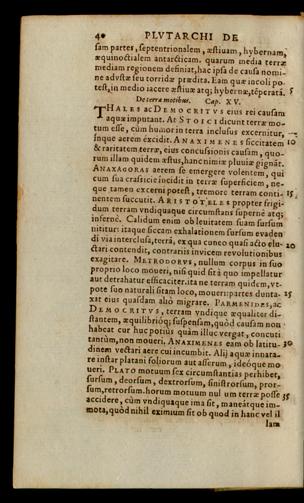 40 PLVTARCHI DE
sam partes, septentrionalem, æstiuam, hybernam,
æquinoctialem antarcticam. quarum media terræ
mediam regionem definiat, hac ipsa de causa nomi-
ne adustæ seu torridæ prædita. Eam quæ incoli po-
test, in medio iacere æstiuæ atq; hybernæ, tēperatā. 5
De terræ motibus. Cap. XV.
THALES ac DEMOCRITVS eius rei causam
aquæ imputant. At STOICI dicunt terræ mo-
tum esse, cùm humor in terra inclusus excernitur,
inque aerem éxcidit. ANAXIMENES siccitatem 10
& raritatem terræ, eius concussionis causam, quo-
rum illam quidem æstus, hanc nimiæ pluuiæ gignāt.
ANAXAGORAS aerem se emergere volentem, qui
cum sua crassicie inciderit in terræ superficiem, ne-
que tamen excerni potest, tremore terram conti- 15
nentem succutit. ARISTOTELES propter frigi-
dum terram vndiquaque circumstans supernè atq;
infernè. Calidum enim ob leuitatem suam sursum
nititur: itaque siccam exhalationem sursum evadendi
di via interclusa, terrā, ex qua cuneo quasi acto elu- 20
ctari contendit, contrariis invicem revolutionibus
exagitare. METRODORVS, nullum corpus in suo
proprio loco moueri, nisi quid sit à quo impellatur
aut detrahatur efficaciter. ita ne terram quidem, vt-
pote suo naturali sitam loco, moueri: partes dunta- 25
xat eius quasdam aliò migrare. PARMENIDES, ac
DEMOCRITVS, terram vndique æqualiter di-
stantem, æquilibrióq; suspensam, quòd causam non
habeat cur huc potiùs quàm illuc vergat, concuti
tantùm, non moueri. ANAXIMENES eam ob latitu- 30
dinem vectari aere cui incumbit. Alij aquæ innata-
re instar platani foliorum aut asserum, ideóque mo-
ueri. PLATO motuum sex circumstantias perhibet,
sursum, deorsum, dextrorsum, sinistrorsum, pror-
sum, retrorsum. horum motuum nul um terræ posse 35
accidere, cùm vndiquaque ima sit, maneátque im-
mota, quòd nihil eximium sit ob quod in hanc vel il
lam